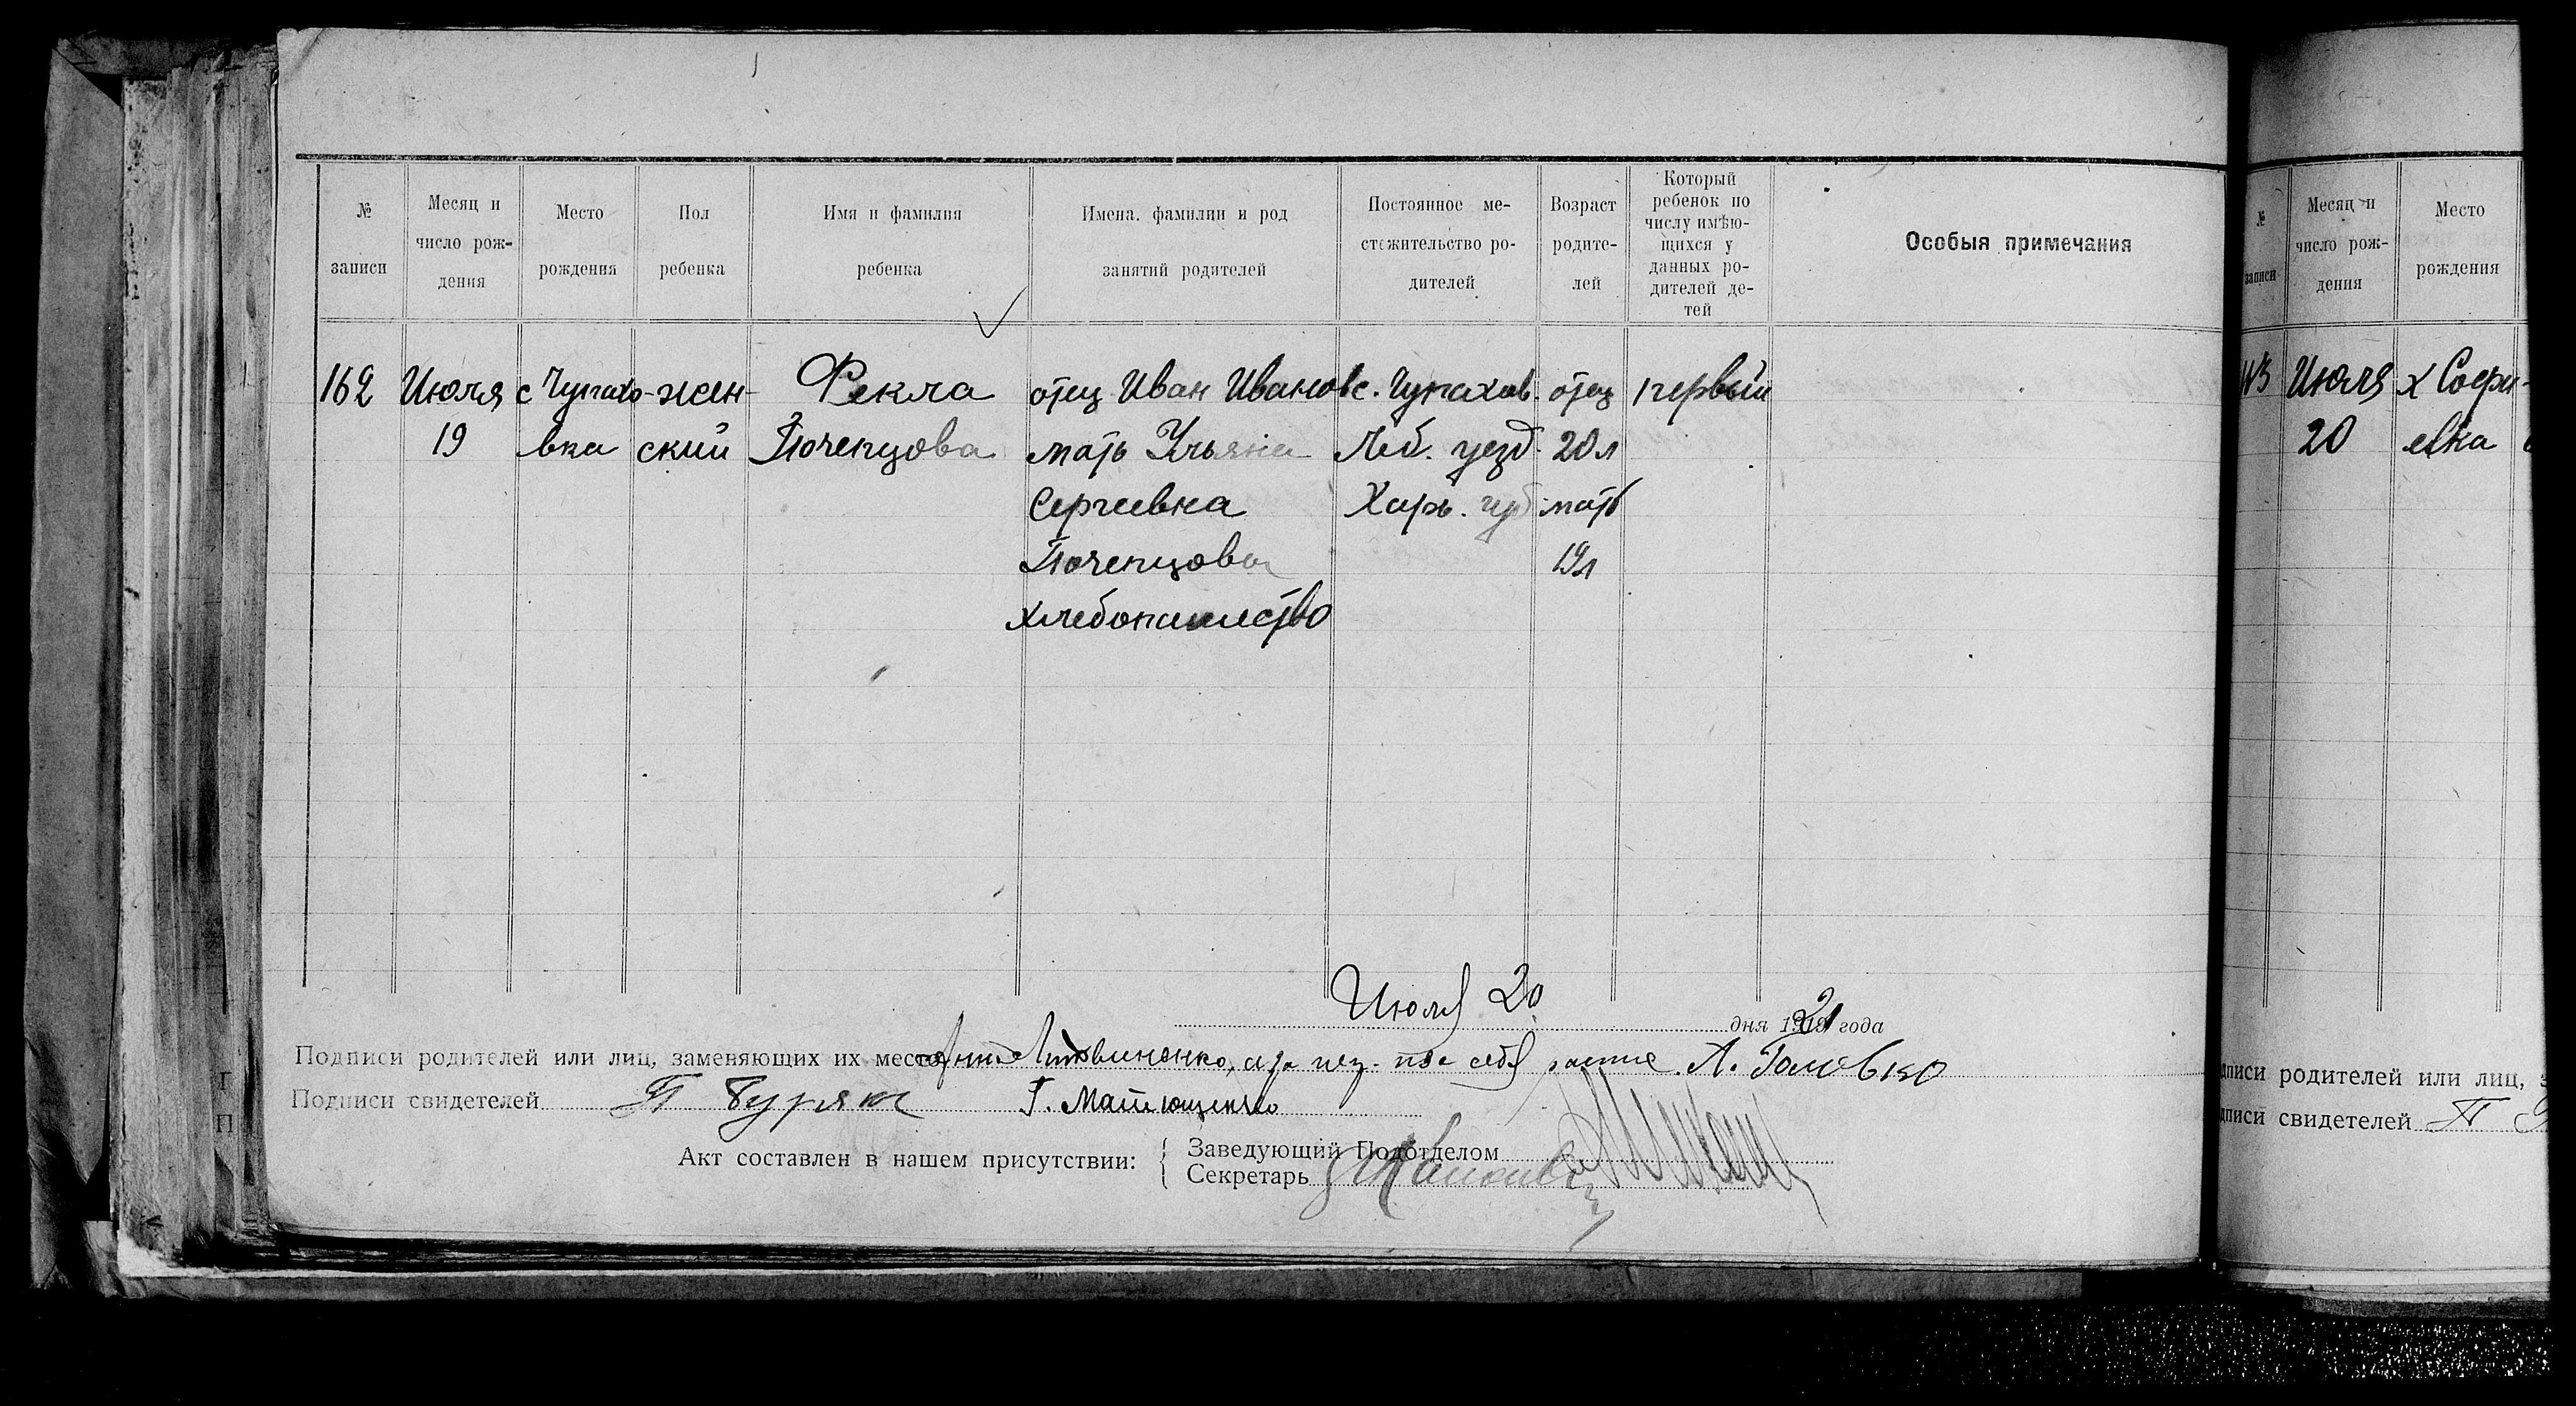 № записи
Месяц и число рождения
Место рождения
Пол ребенка
Имя и фамилия ребенка
Имена, фамилии и род занятий родителей
Постоянное местожительство родителей
Возраст родителей
Который ребенок по числу имѣющихся у данных родителей детей
Особыя примечания
162 Июля с Чупахо- жен- Фекла отец Иван Иванов с. Чупахов. отец первый
19 вка ский Поченцова мать Ульяна Леб. уезд. 20 л
Сергеевна Харь. губ мать
Поченцова 19 л
хлебопашество
Июля 20 дня 1921 года
Подписи родителей или лиц, заменяющих их место Литовиненко, а за нег. А. Головко
Подписи свидетелей П Буряк Г. Матющенко
Акт составлен в нашем присутствии:
Заведующий Подотделом
Секретарь
№ записи
Месяц и число рождения
Место рождения
Июля х Софи-
20 евка
дписи родителей или лиц,
дписи свидетелей П